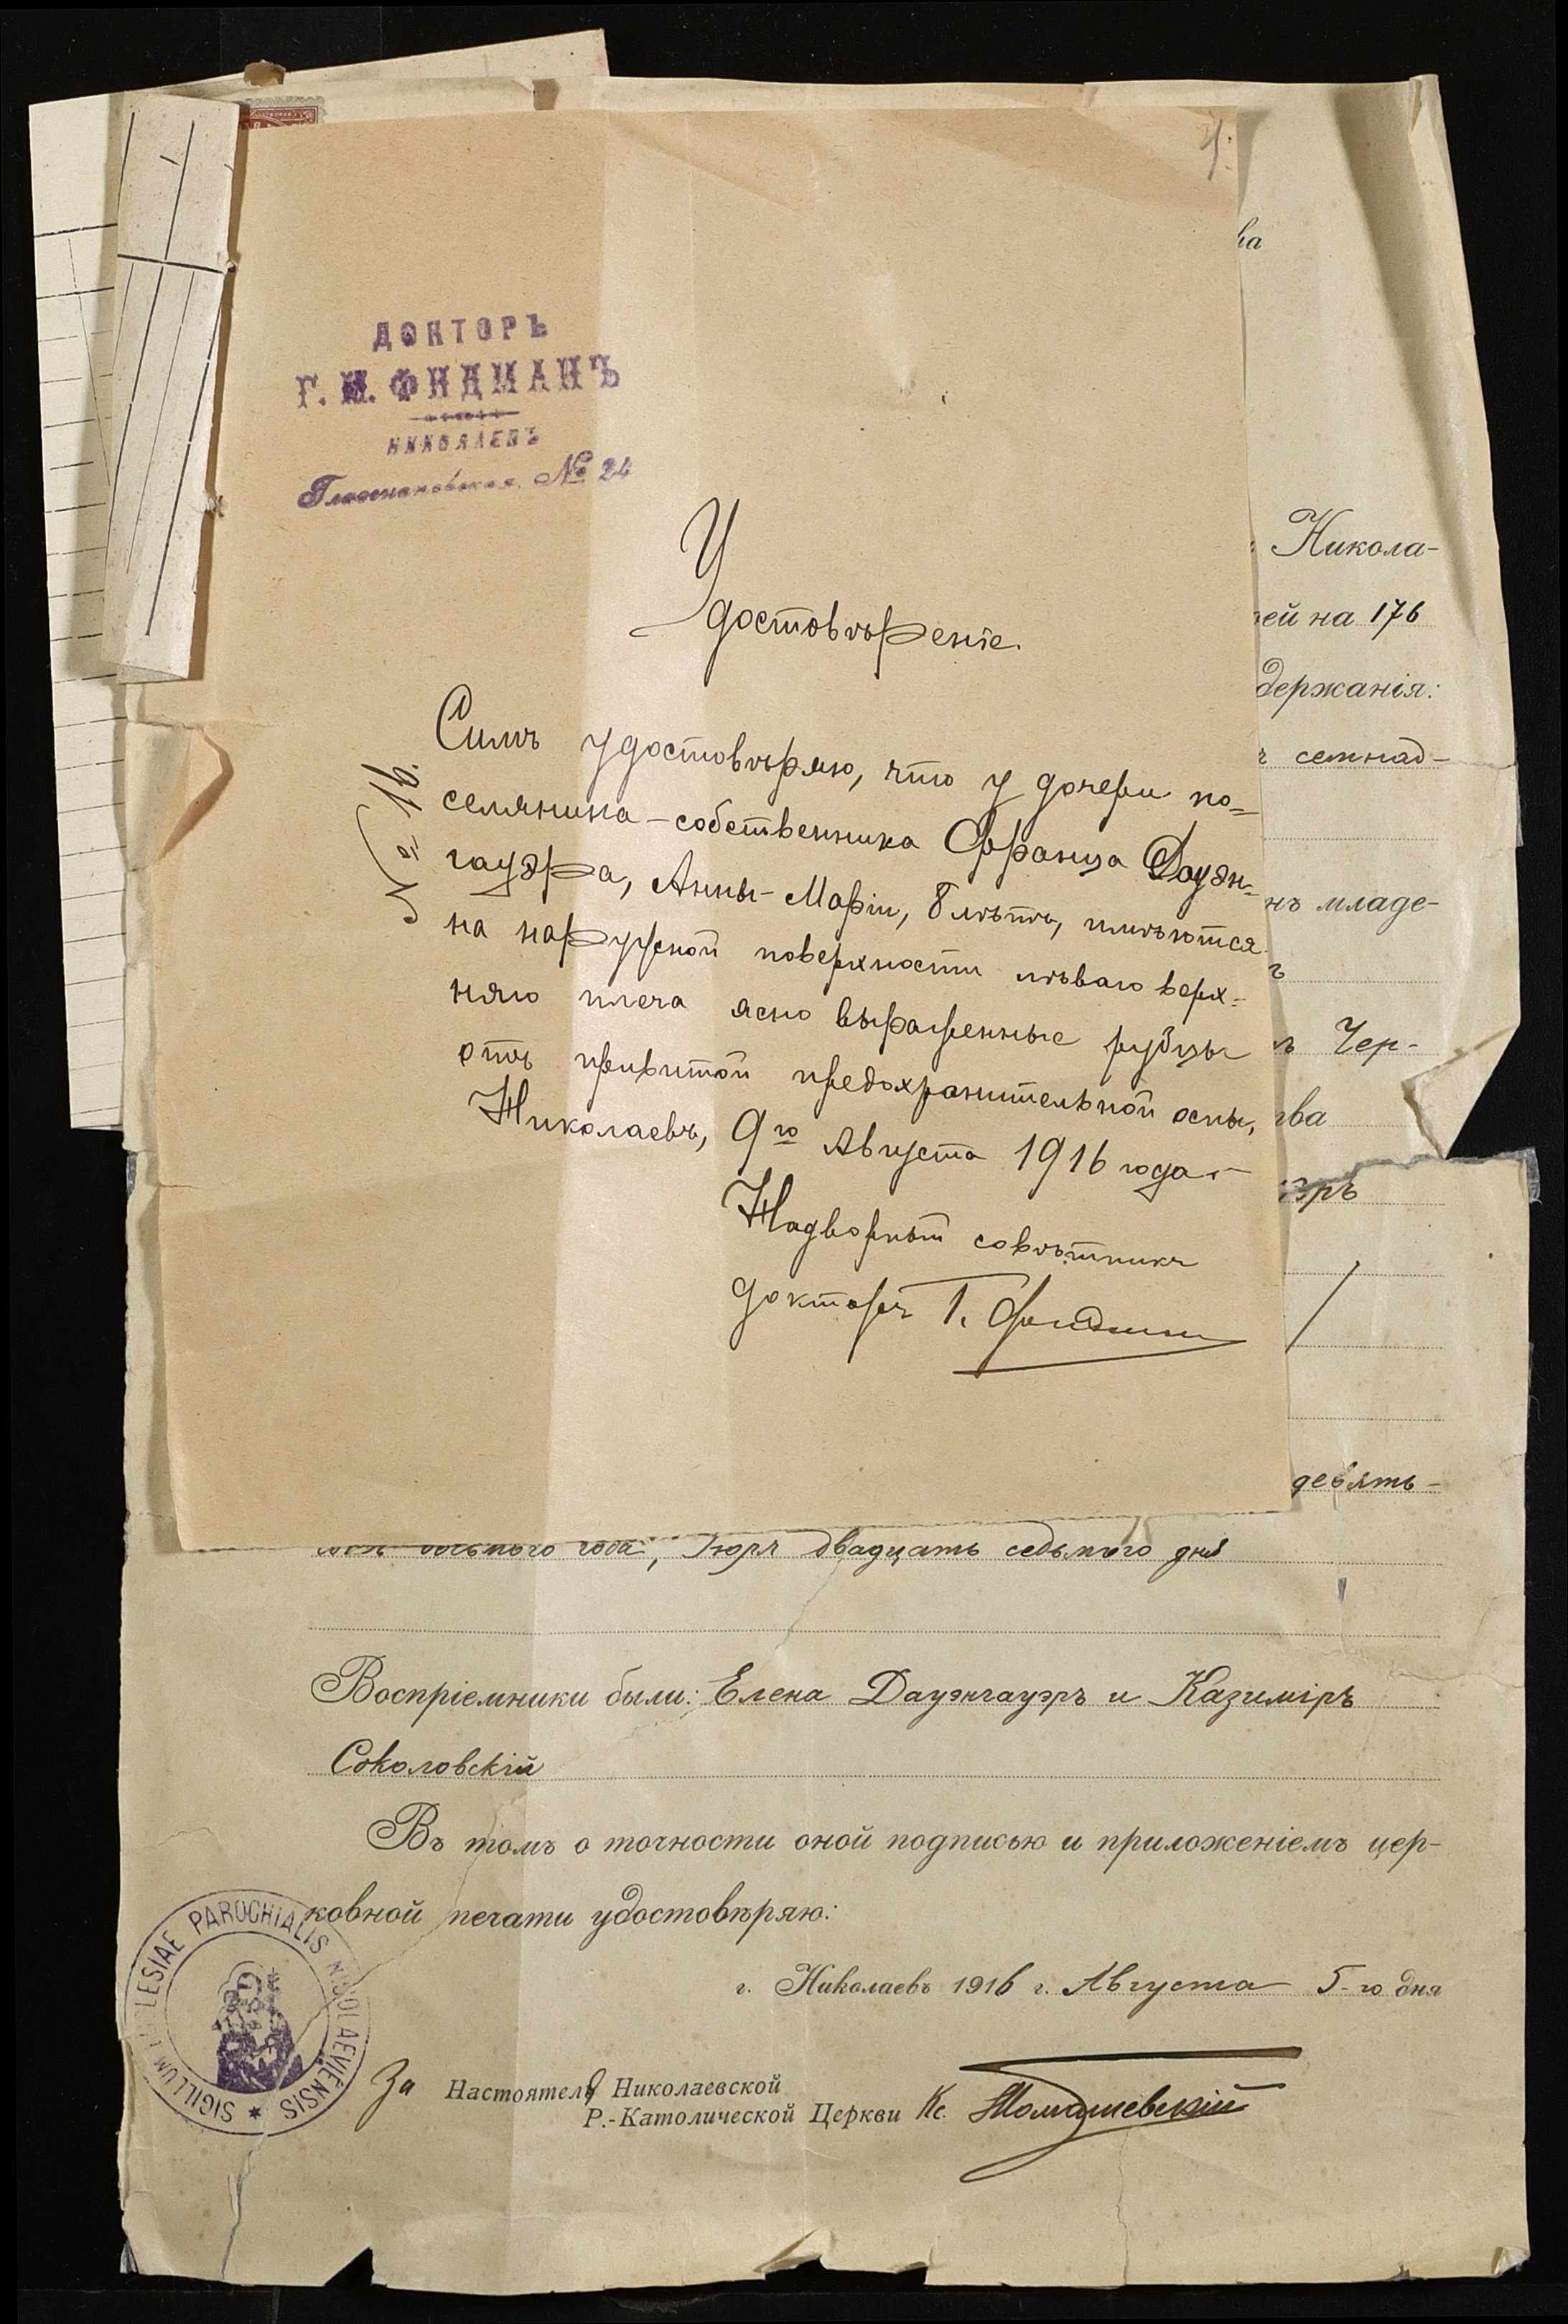 ДОКТОРЪ
Г. М. ФИДМАНЪ
НИКОЛАЕВЪ
№ 24
Удостовѣреніе.
№ 16.
Симъ удостовѣряю, что у дочери по=
селянина-собственника Франца Дауэн-
гауэра, Анны-Маріи, 8 лѣтъ, имѣются
на наружной поверхности лѣваго верх-
няго плеча ясно выраженные рубцы
отъ привитой предохранительной оспы,
Николаевъ, 9го Августа 1916 года.-
Надворный совѣтникъ
докторъ Г. Фидман
ва
Никола-
ей на 176
держанія:
семнад-
нъ младе-
Чер-
ва
эръ
девять-
сотъ восьмого года, Іюля двадцать седьмого дня
Воспріемники были: Елена Дауэнгауэръ и Казиміръ
Соколовскій
Въ томъ о точности оной подписью и приложеніемъ цер-
ковной печати удостовѣряю:
г. Николаевъ 1916 г. Августа 5-го дня
За Настоятеля Николаевской
Р.-Католической Церкви Кс. Томашевскій
SIGILLUM ECCLESIAE PAROCHIALIS NICOLAEVIENSIS